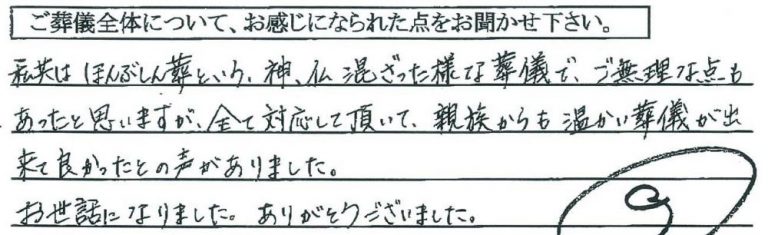 ご葬儀全体について、お感じになられた点をお聞かせ下さい。
私共は ほんぶしん葬という、神、仏 混ざった様な葬儀で、ご無理な点も
あったと思いますが、全て対応して頂いて、親族からも温かい葬儀が出
来て良かったとの声がありました。
お世話になりました。ありがとうございました。